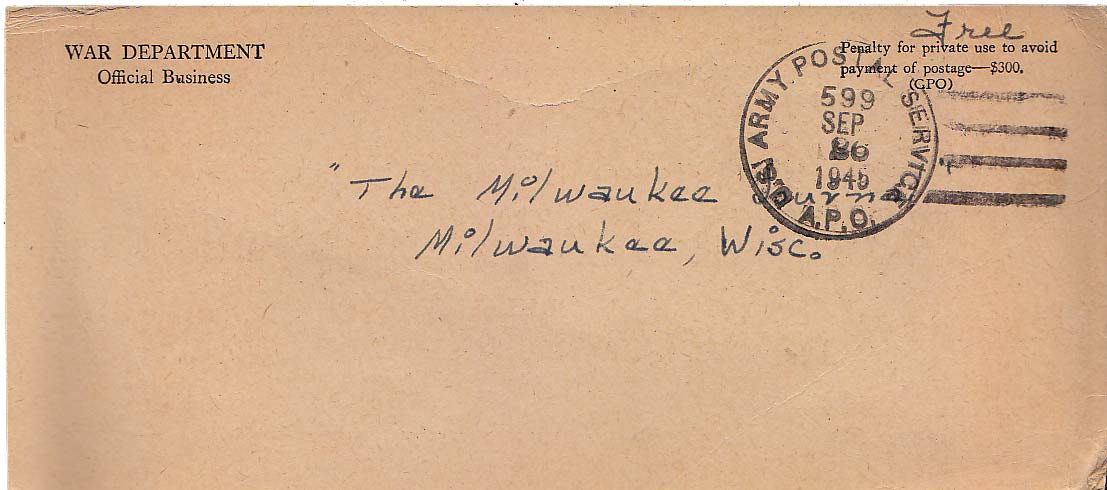 Free
WAR DEPARTMENT
Official Business
Penalty for private use to avoid
payment of postage—$300.
(GPO)
U.S. ARMY POSTAL SERVICE
599
SEP
26
1945
A.P.O.
"The Milwaukee Journal
Milwaukee, Wisc.